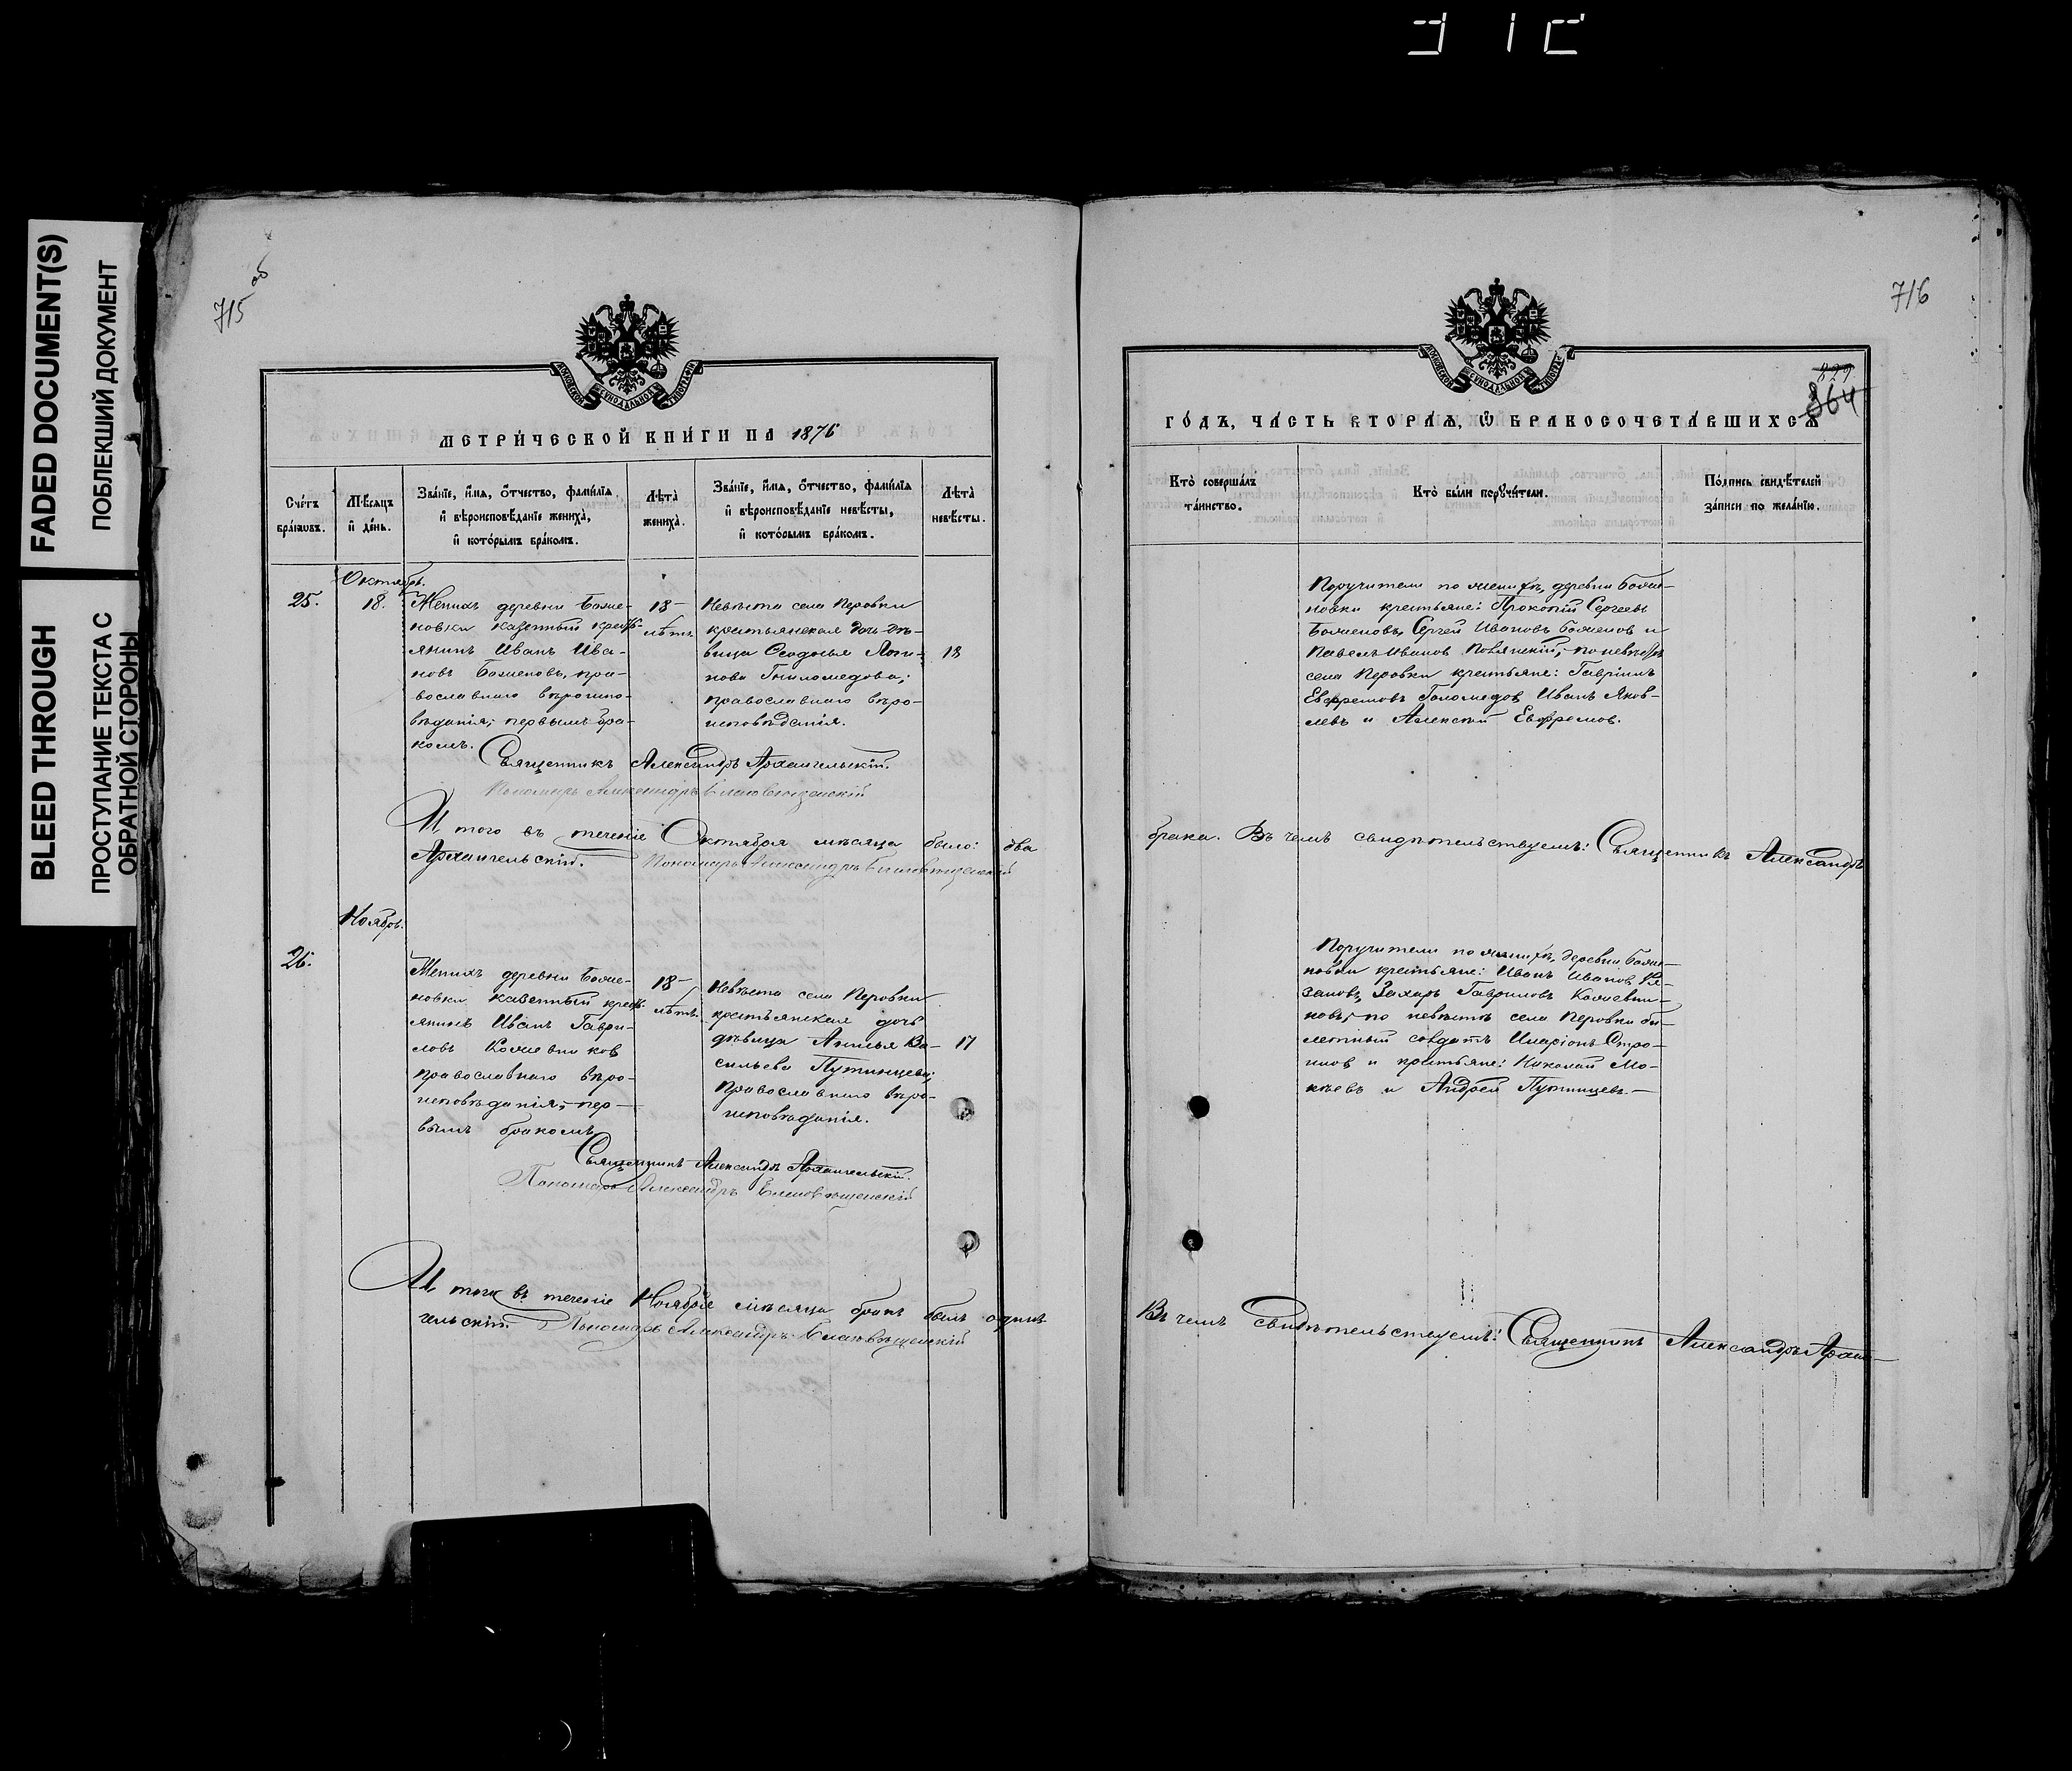 312
FADED DOCUMENT(S)
ПОБЛЕКШИЙ ДОКУМЕНТ
BLEED THROUGH
ПРОСТУПАНИЕ ТЕКСТА С
ОБРАТНОЙ СТОРОНЫ
715 об
МЕТРИ́ЧЕСКОЙ КНИ́ГИ НА 1876
Сче́тъ бра́ковъ.
Мѣ́сяцъ и де́нь.
Зва́нїе, и́мя, о́тчество, фами́лїя и вѣроисповѣ́данїе жениха̀, и кото́рымъ бра́комъ.
Лѣта̀ жениха̀.
Зва́нїе, и́мя, о́тчество, фами́лїя и вѣроисповѣ́данїе невѣ́сты, и кото́рымъ бра́комъ.
Лѣта̀ невѣ́сты.
25.
Октябрь.
18.
Женихъ деревни Божени-
новки казенный крест-
янинъ Иванъ Ива-
новъ Боженовъ, пра-
вославнаго вѣроиспо-
вѣданія; первымъ бра-
комъ.
18
лѣтъ.
Невѣста села Перовки
крестьянская дочь дѣ-
вица
православнаго вѣро-
исповѣданія.
18
Священникъ Александръ Архангельскій.
Пономарь Александръ Благовѣщенскій
И того въ теченіе Октября мѣсяца было: два
Архангельскій. Пономарь Александръ Благовѣщенскій
Ноябрь.
26.
Женихъ деревни
казенный крест-
янинъ Иванъ Гаври-
ловъ
православнаго вѣро-
исповѣданія; пер-
вымъ бракомъ
18
лѣтъ.
Невѣста села Перовки
крестьянская дочь
дѣвица Ва-
сильева Путинцева;
православнаго вѣро-
исповѣданія.
17
Священникъ Александръ Архангельскій.
Пономарь Александръ Благовѣщенскій
И того въ теченіе Ноября мѣсяца бракъ былъ одинъ
гельскій. Пономарь Александръ Благовѣщенскій
716
864
ГО́ДЪ, ЧА́СТЬ ВТОРА́Я, Ѽ БРАКОСОЧЕТА́ВШИХСЯ
Кто̀ соверша́лъ та́инство.
Кто̀ бы́ли поручи́тели.
По́дпись свидѣ́телей за́писи по жела́нїю.
Поручители по женихѣ, деревни
крестьяне: Прокопій Сергеевъ
Боженовъ, Сергей Ивановъ Боженов и
Павелъ Иванов
села Перовки крестьяне: Гавріилъ
Евфремовъ Иванъ Яков-
левъ и Алексѣй Евфремов.
брака. Въ чемъ свидѣтельствуемъ: Священникъ Александръ
Поручители по женихѣ, деревни
крестьяне: Иванъ Иванов
Захаръ Гавриловъ
по невѣстѣ села Перовки би-
летный солдатъ Иларіонъ Стро-
и крестьяне: Николай Мо-
кѣевъ и Андрей Путинцевъ.
Въ чемъ свидѣтельствуемъ: Священникъ Александръ Архан-